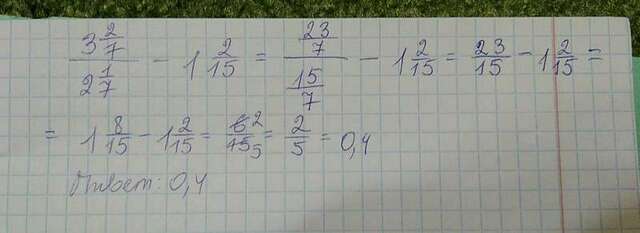 3 2/7 / 2 1/7 - 1 2/15 = 23/7 / 15/7 - 1 2/15 = 23/15 - 1 2/15 =
= 1 8/15 - 1 2/15 = 6 2/15 5 = 2/5 = 0,4
Ответ: 0,4